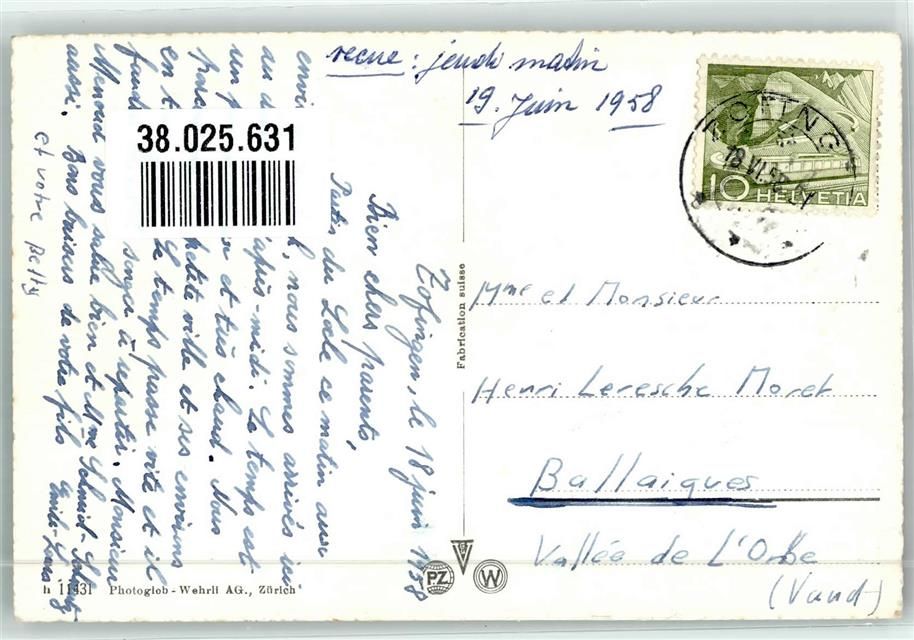 recue : jeudi matin
19. Juin 1958
10 HELVETIA
38.025.631
Zofingen, le 18 juin 1958
Bien chers parents,
Partis du Locle ce matin avec
envi
au d l, nous sommes arrivés ici
un p après-midi. Le temps est
parc et très chaud. Nous
en t petite ville et ses environs
fund Le temps passe vite et il
songer à repartir. Monsieur
Minout vous salue bien et Mme Schmid-
aussi. Bons baisers de votre fils Emile-Louis
et votre Betty
Fabrication suisse
Mme et Monsieur
Henri Leresche Moret
Ballaigues
Vallée de L'Orbe
(Vaud)
PZ W
h 11431 Photoglob - Wehrli AG., Zürich